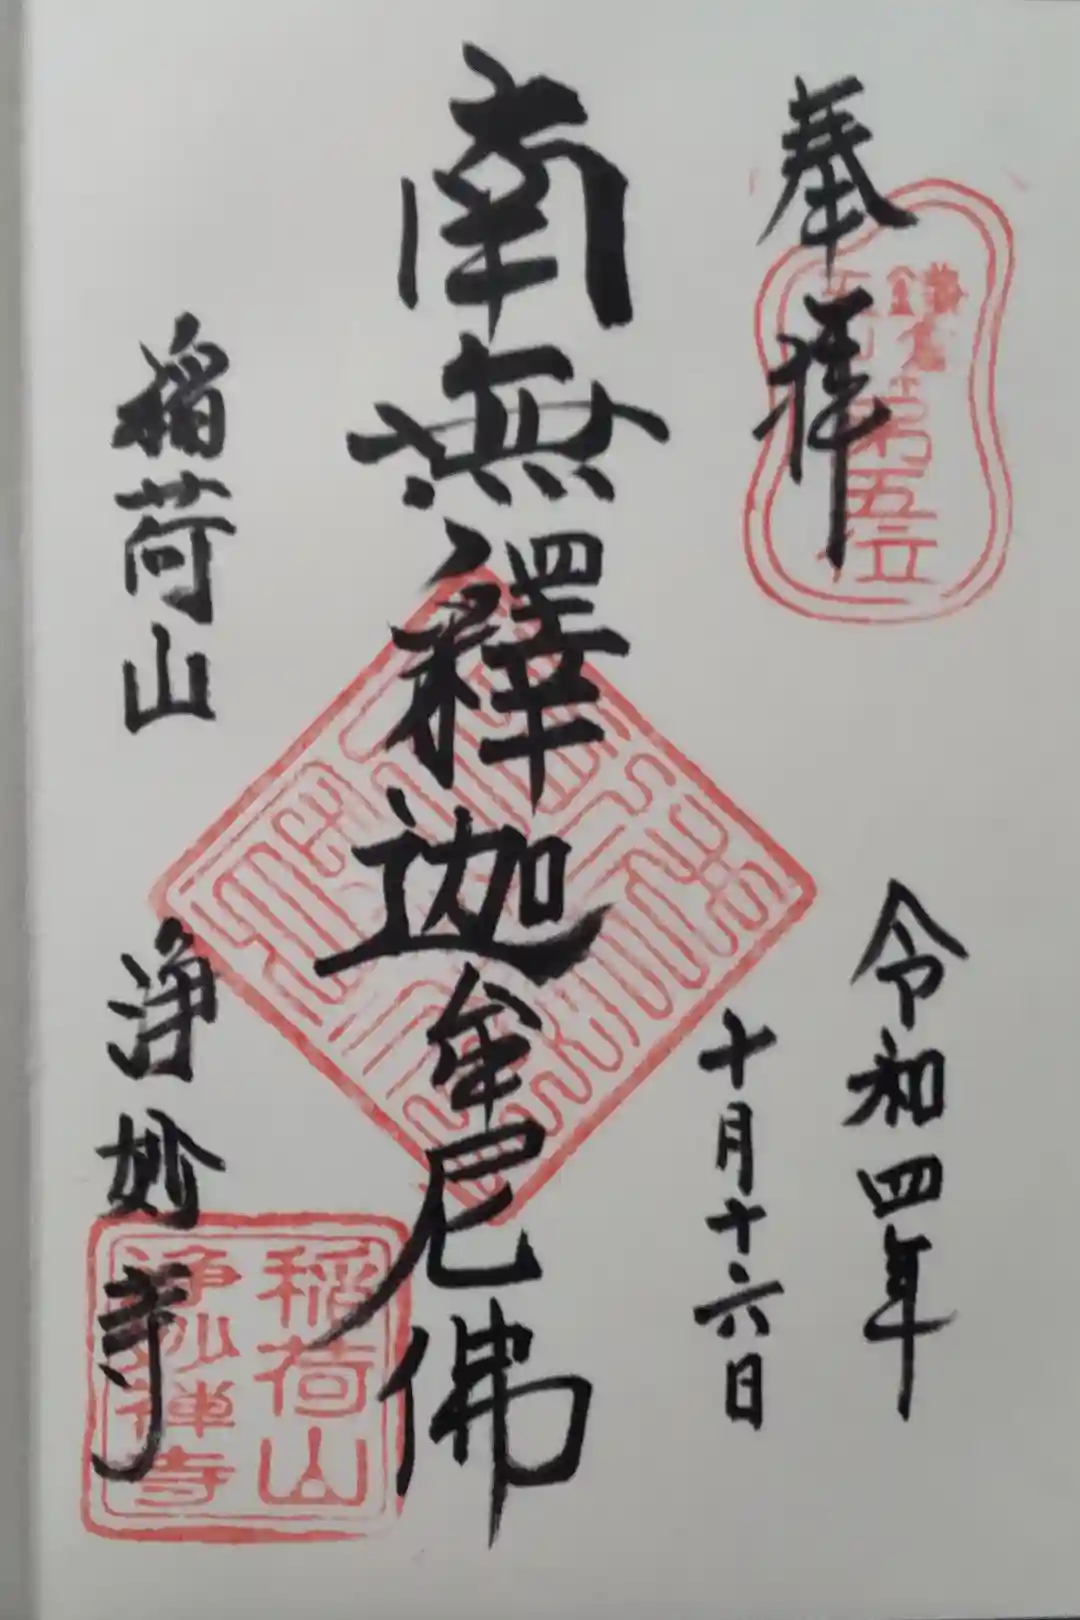 奉拝
鎌倉
五山第五位
令和四年
十月十六日
南無釋迦牟尼佛
稲荷山
浄妙寺
稲荷山
浄妙禅寺